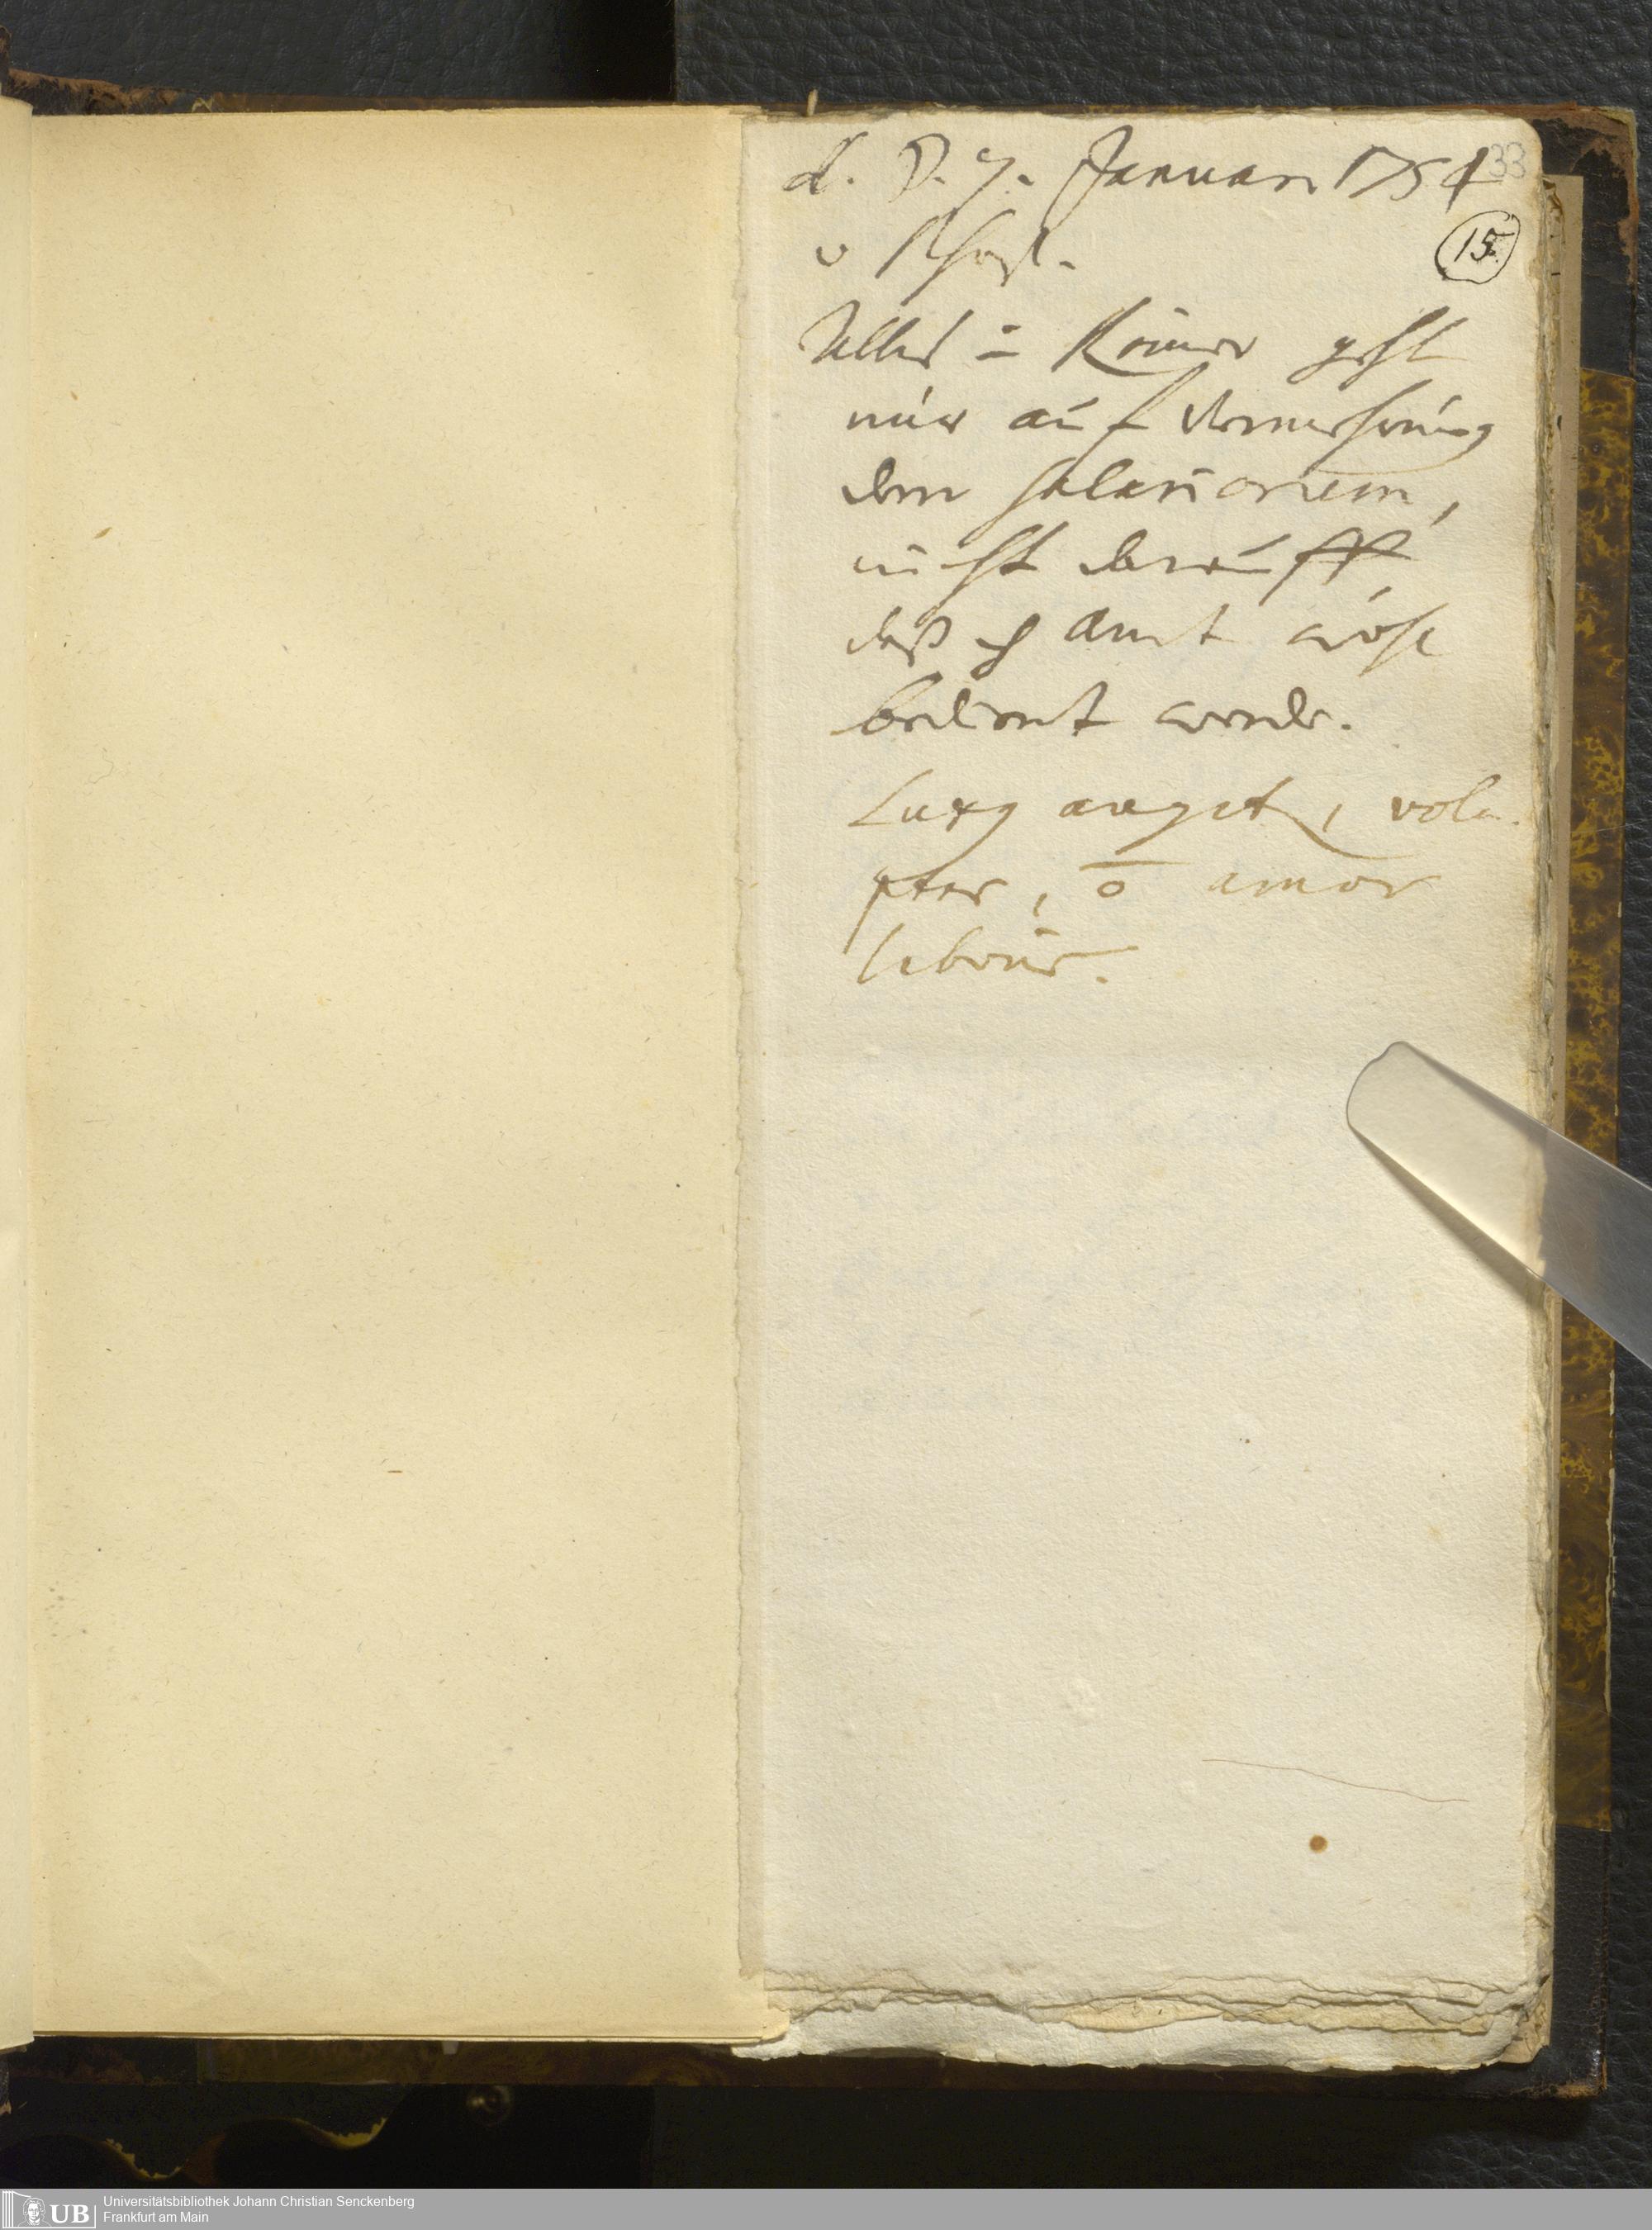 d. D. 7. Januari 1754
33
15.
Alles im Römer geht
nur auf Vermehrung
dern salariorum,
nicht darauff
daß ich Amt wohl
bedient werde.
Luxus auget, volu-
ptas, o amor
laboris.
UB
Universitätsbibliothek Johann Christian Senckenberg
Frankfurt am Main